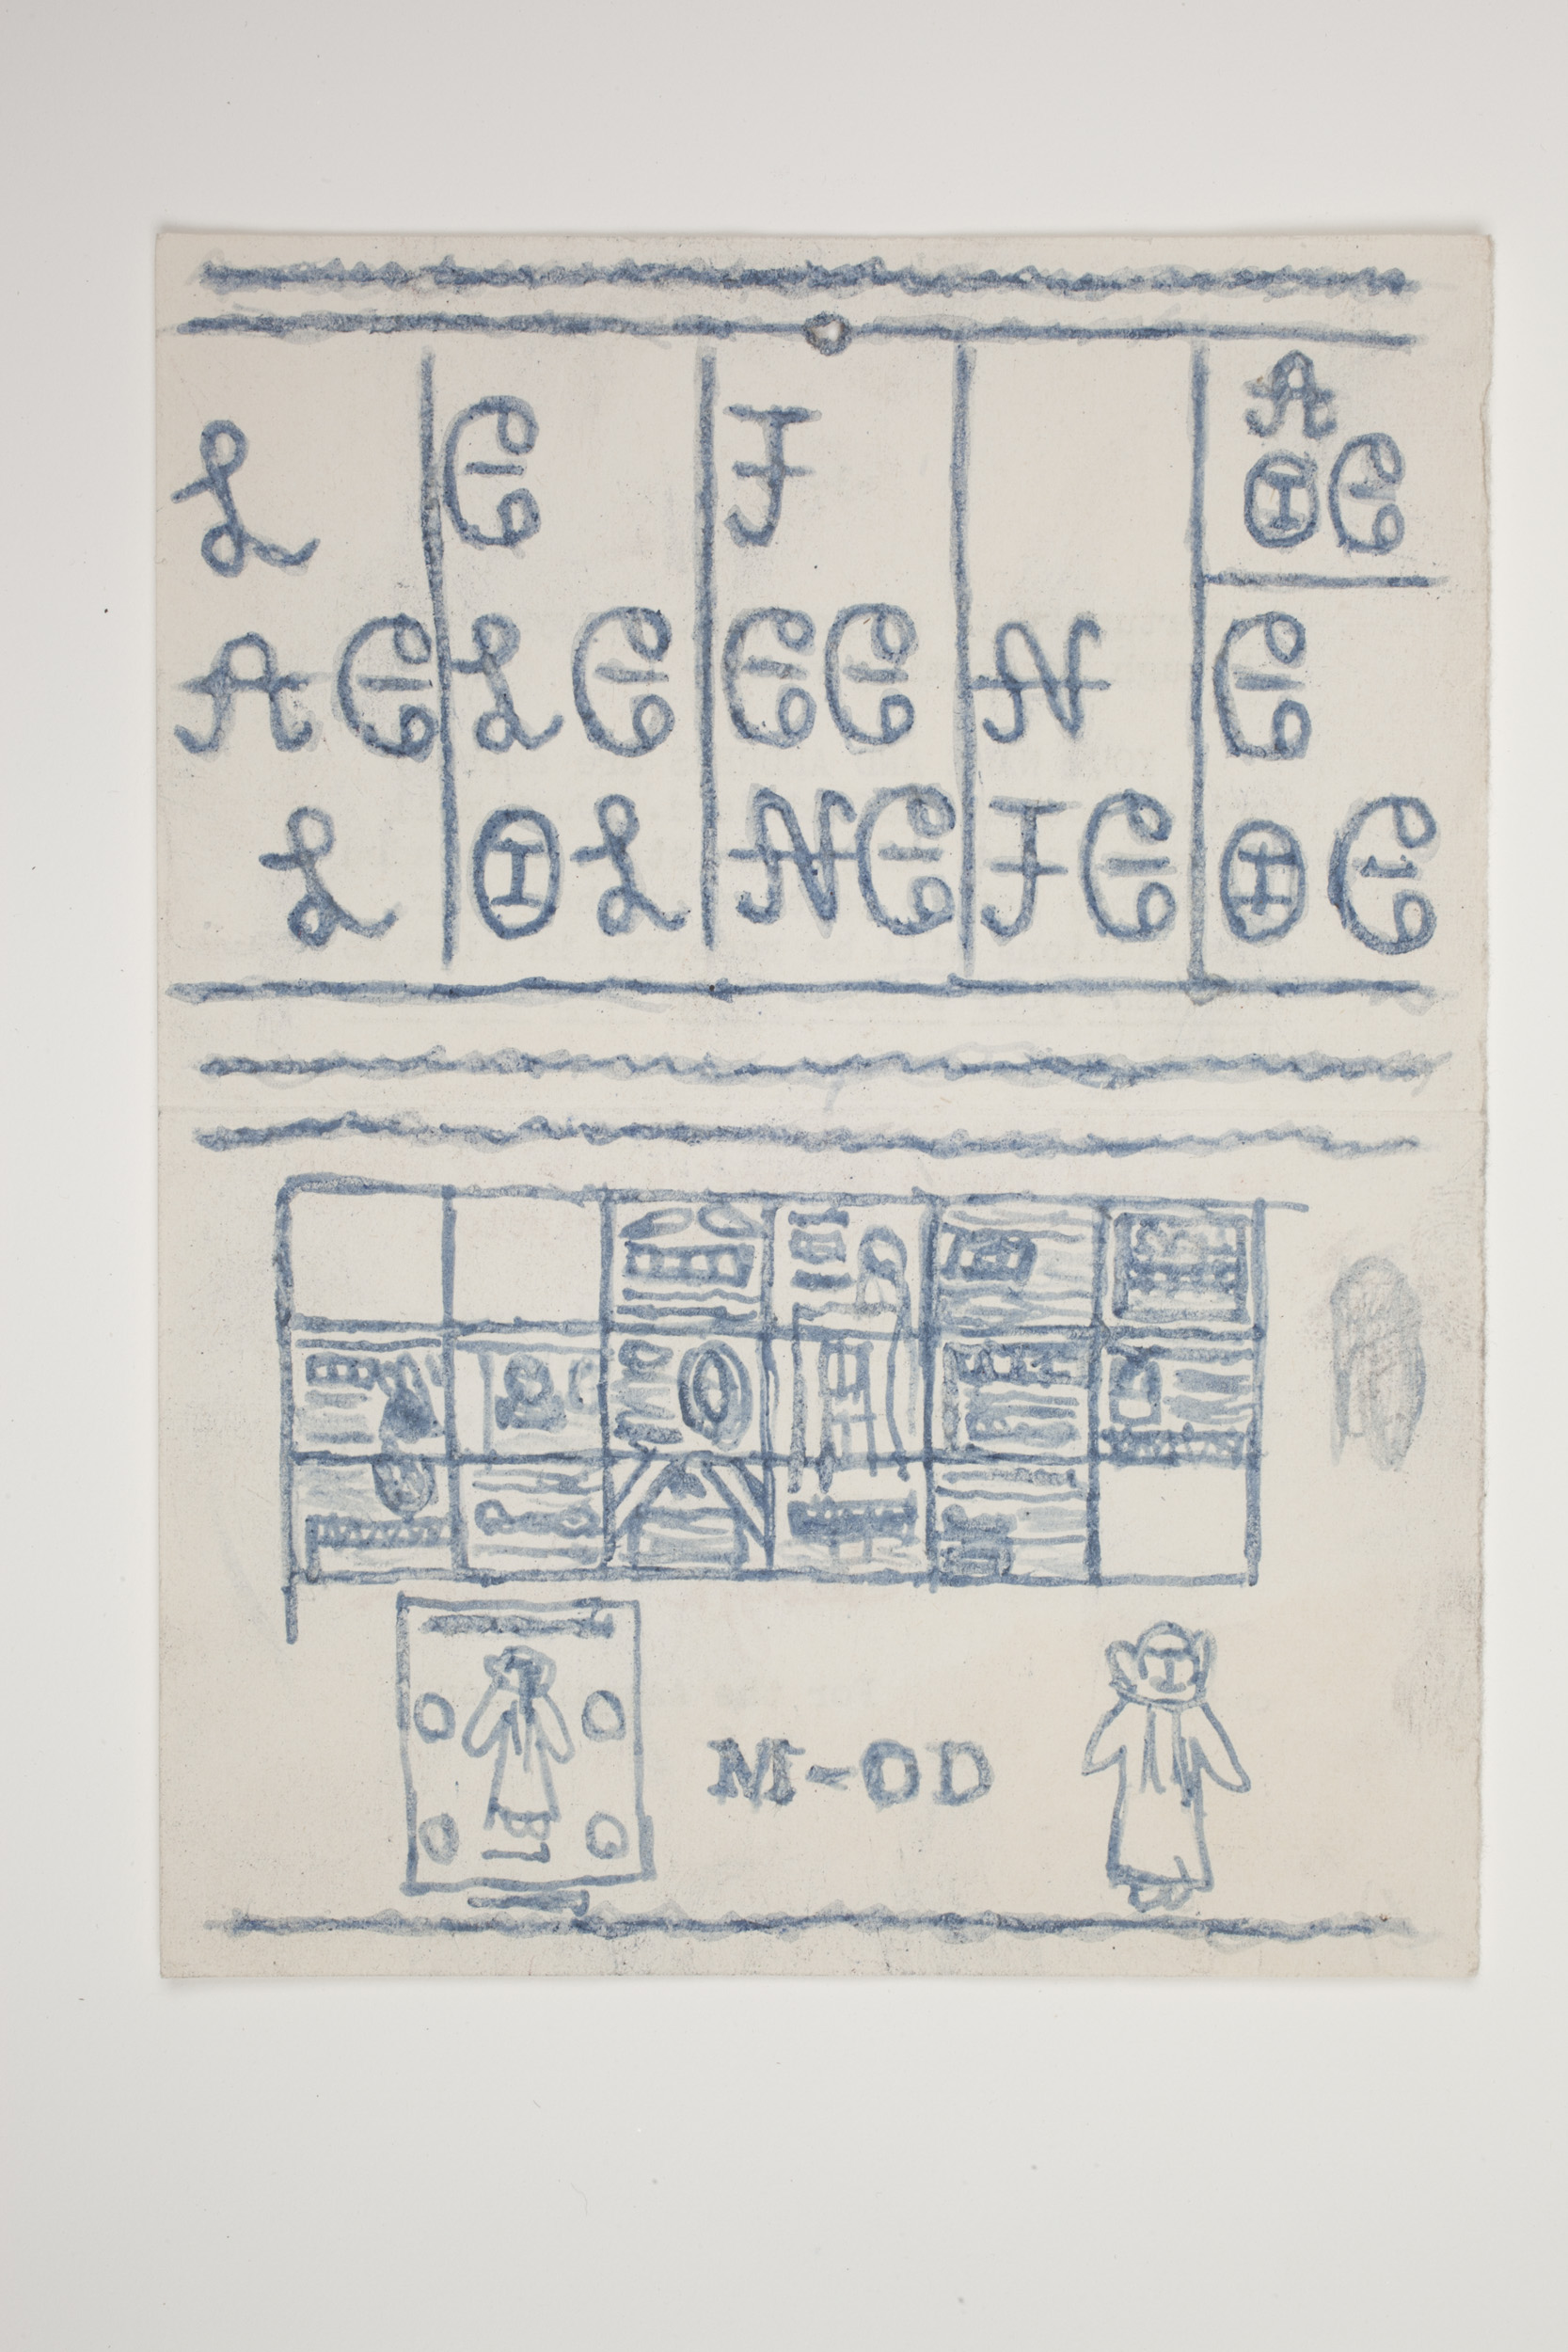 A
L E F Θ E
A E L E E E N E
L Θ L N E F E Θ E
M-OD